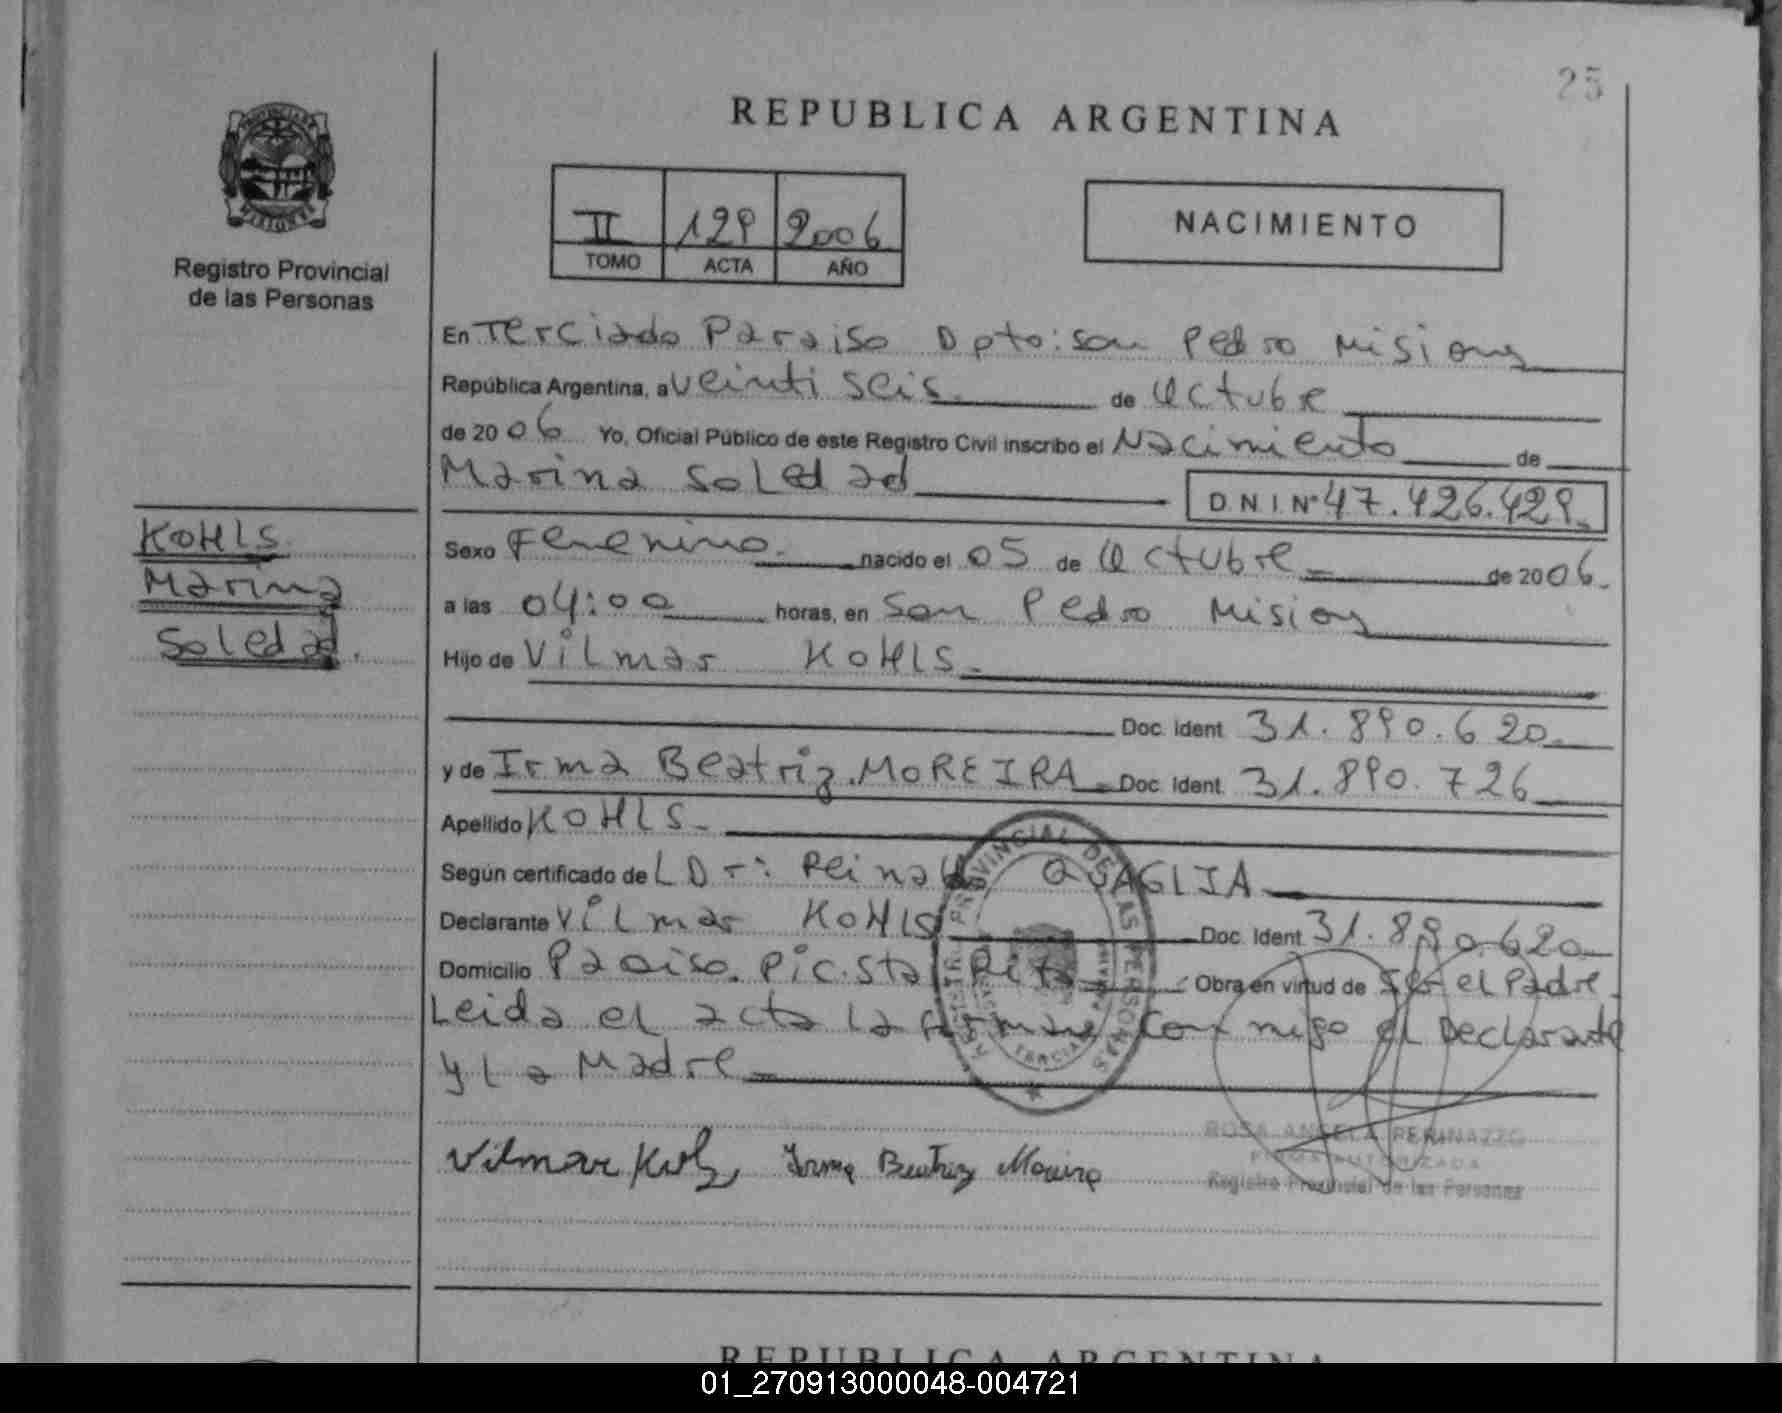 25
REPUBLICA ARGENTINA
II 129 2006
TOMO ACTA AÑO
NACIMIENTO
Registro Provincial
de las Personas
En Terciado Paraiso Dpto: San Pedro Misiones
República Argentina, a veinti seis de Octubre
de 2006 Yo, Oficial Público de este Registro Civil inscribo el Nacimiento de
Marina Soledad
D.N.I. Nº 47.426.429.
KOHLS
Marina
Soledad.
Sexo Femenino. nacido el 05 de Octubre de 2006.
a las 04:00 horas, en San Pedro Misiones
Hijo de Vilmar KOHLS.
Doc. Ident. 31.890.620.
y de Irma Beatriz MOREIRA Doc. Ident. 31.890.726
Apellido KOHLS.
Según certificado de LD-: QUAGLIA
Declarante Vilmar KOHLS Doc. Ident. 31.890.620
Domicilio Paraiso. Pic. Sta Rita Obra en virtud de Ser el Padre.
Leida el acta la firman con migo el Declarante
y La Madre
Vilmar Irma Beatriz Moreira
ROSA ANGELA PERINAZZO
FIRMA AUTORIZADA
Registro Provincial de las Personas
REPUBLICA ARGENTINA
01_270913000048-004721